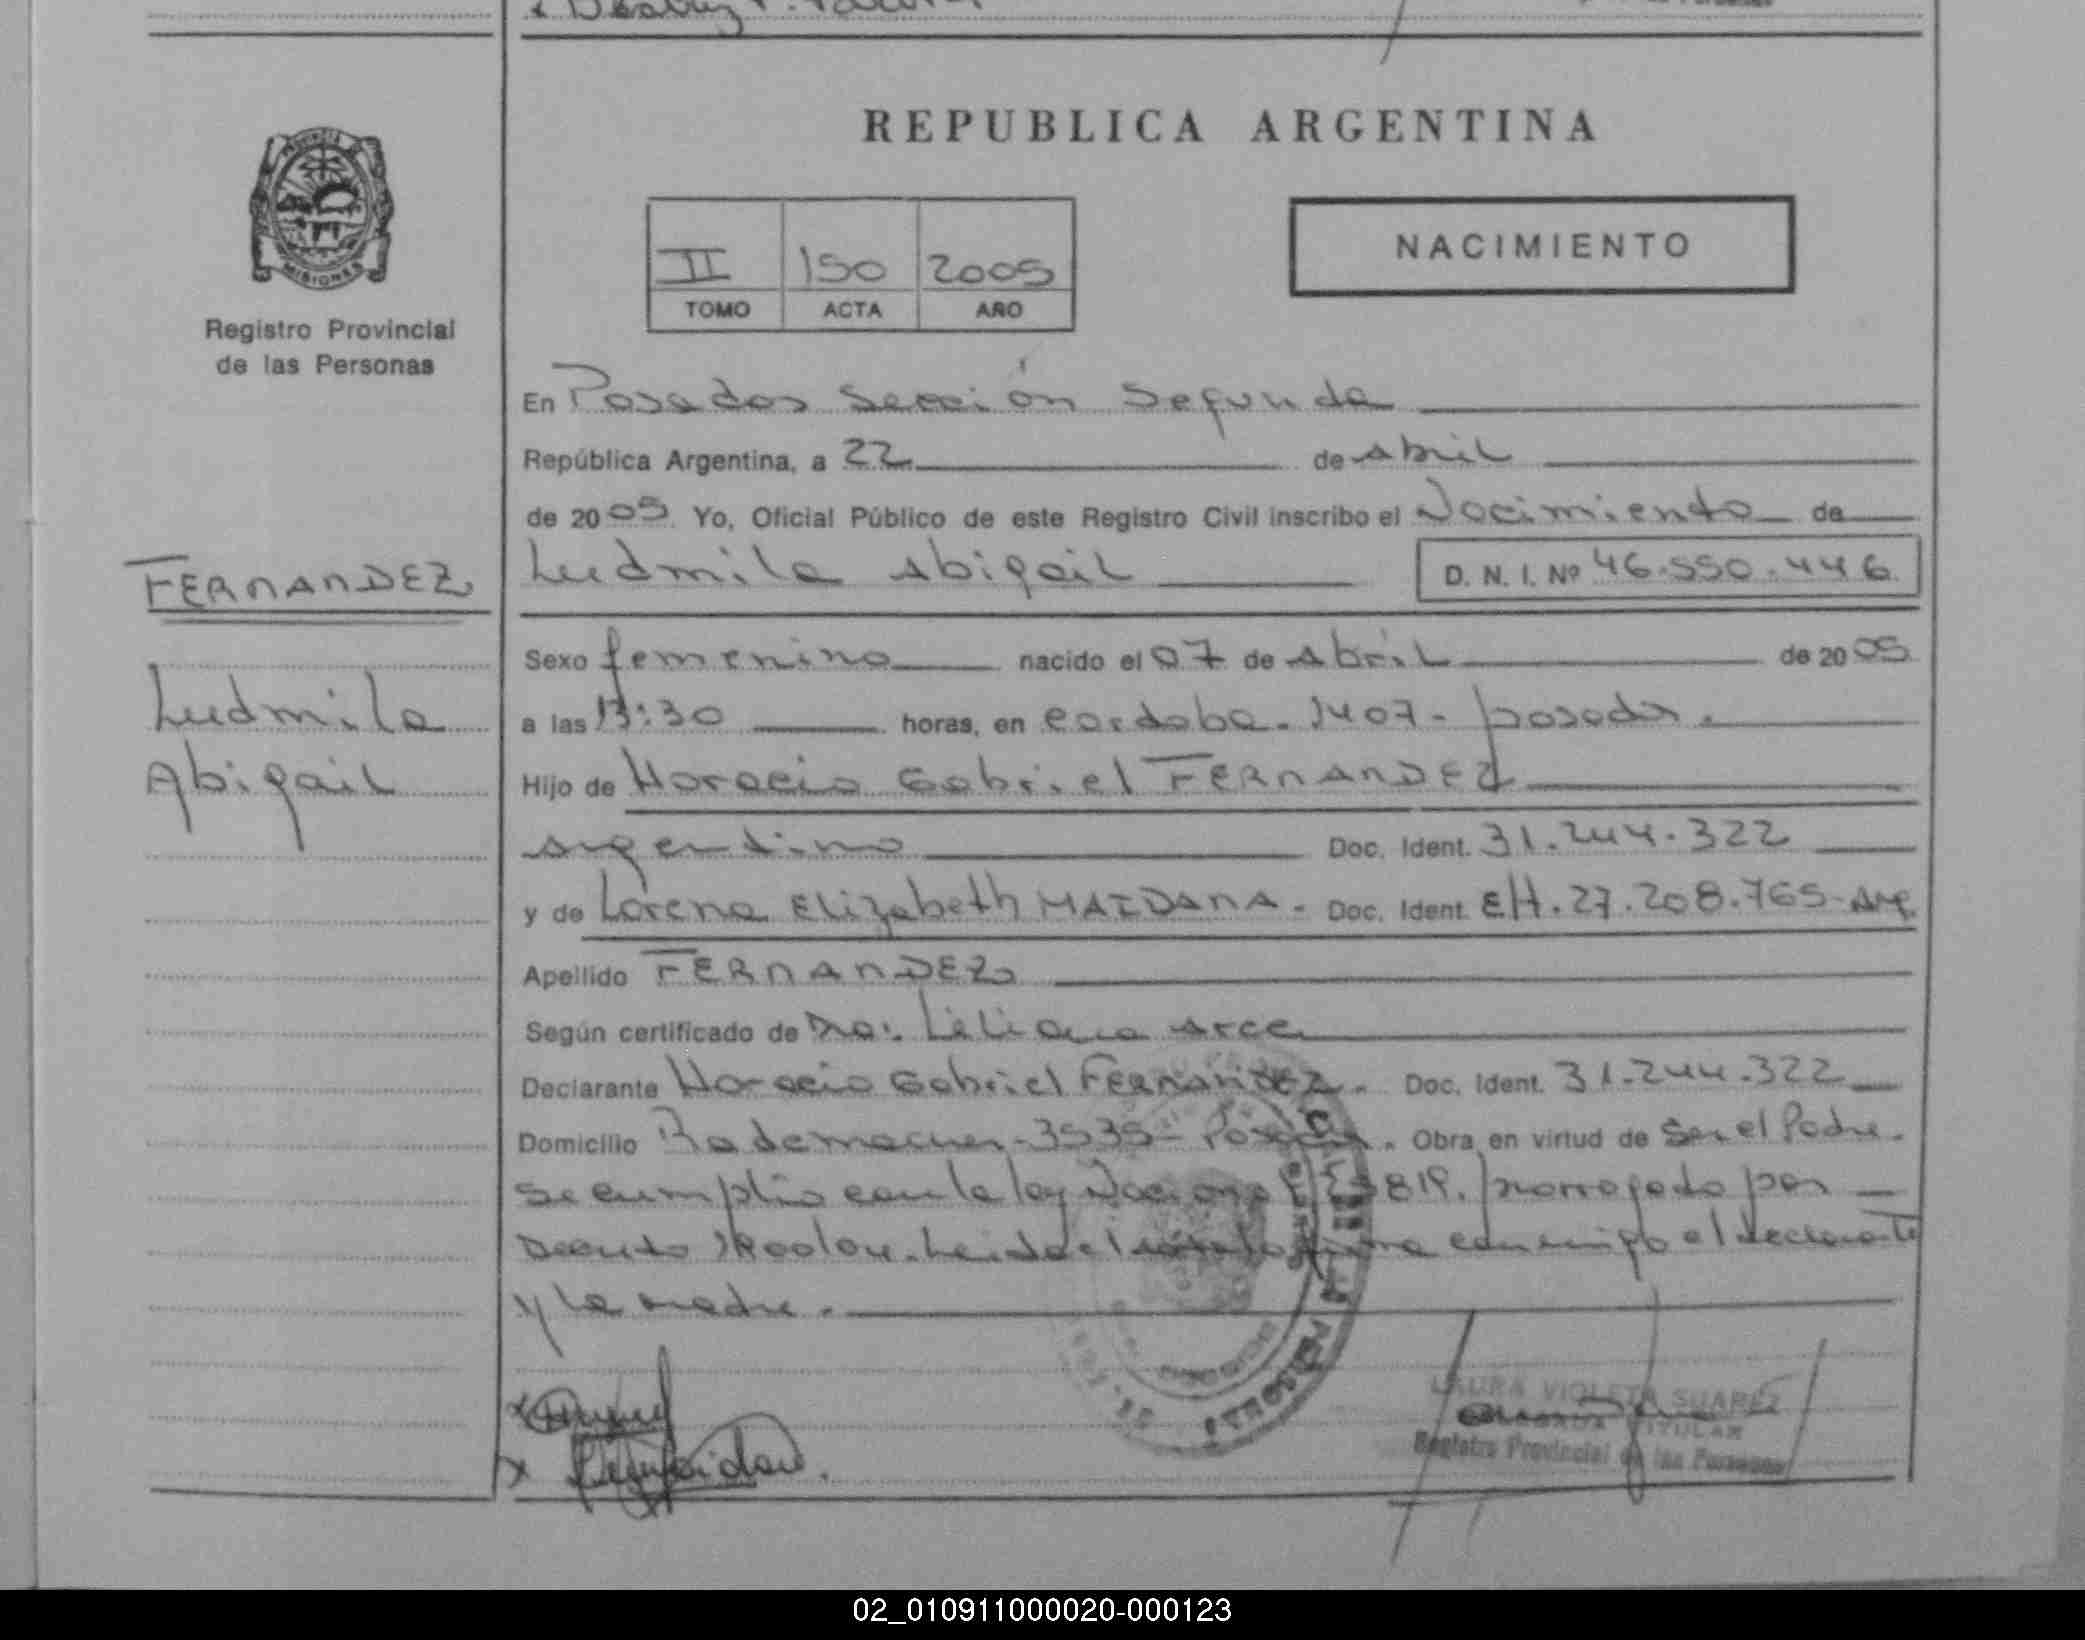 REPUBLICA ARGENTINA
PROVINCIA DE
MISIONES
Registro Provincial
de las Personas
II 150 2005
TOMO ACTA AÑO
NACIMIENTO
En Posadas Sección Segunda
República Argentina, a 22 de Abril
de 2005 Yo, Oficial Público de este Registro Civil inscribo el Nacimiento de
FERNANDEZ
Ludmila
Abigail
Ludmila Abigail D. N. I. Nº 46.550.446
Sexo femenino nacido el 07 de Abril de 2005
a las 13:30 horas, en Cordoba - 1407 - posadas.
Hijo de Horacio Gabriel FERNANDEZ
argentino Doc. Ident. 31.244.322
y de Lorena Elizabeth MAIDANA - Doc. Ident. EH. 27.208.765 - Arg.
Apellido FERNANDEZ
Según certificado de Dra: Liliana Arce
Declarante Horacio Gabriel FERNANDEZ. Doc. Ident. 31.244.322
Domicilio Rademacher - 3535 - Posadas. Obra en virtud de Ser el Padre.
Se cumplio con la ley Nacional 819. prorrogado por
Decreto Leida el firma conmigo el declarante
y la madre.
LAURA VIOLETA SUAREZ
TITULAR
Registro Provincial de las Personas
02_010911000020-000123